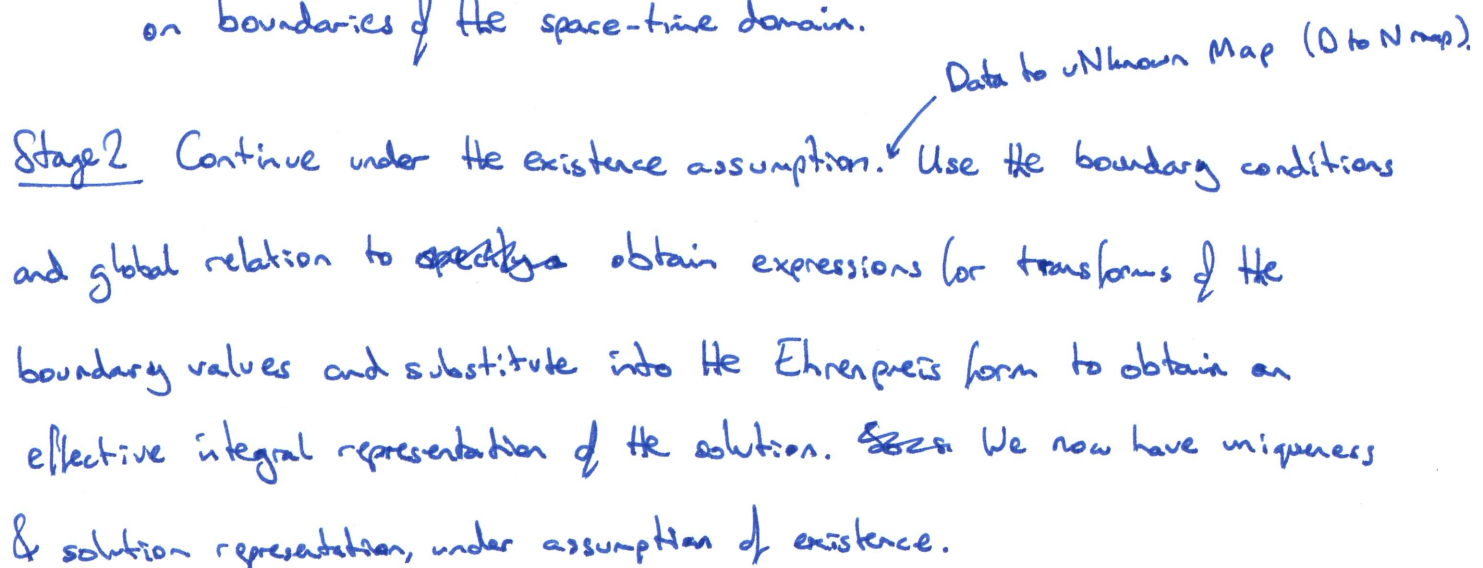 on boundaries of the space-time domain.
Data to uNknown Map (D to N map).
Stage 2 Continue under the existence assumption. Use the boundary conditions
and global relation to obtain expressions for transforms of the
boundary values and substitute into the Ehrenpreis form to obtain an
effective integral representation of the solution. We now have uniqueness
& solution representation, under assumption of existence.